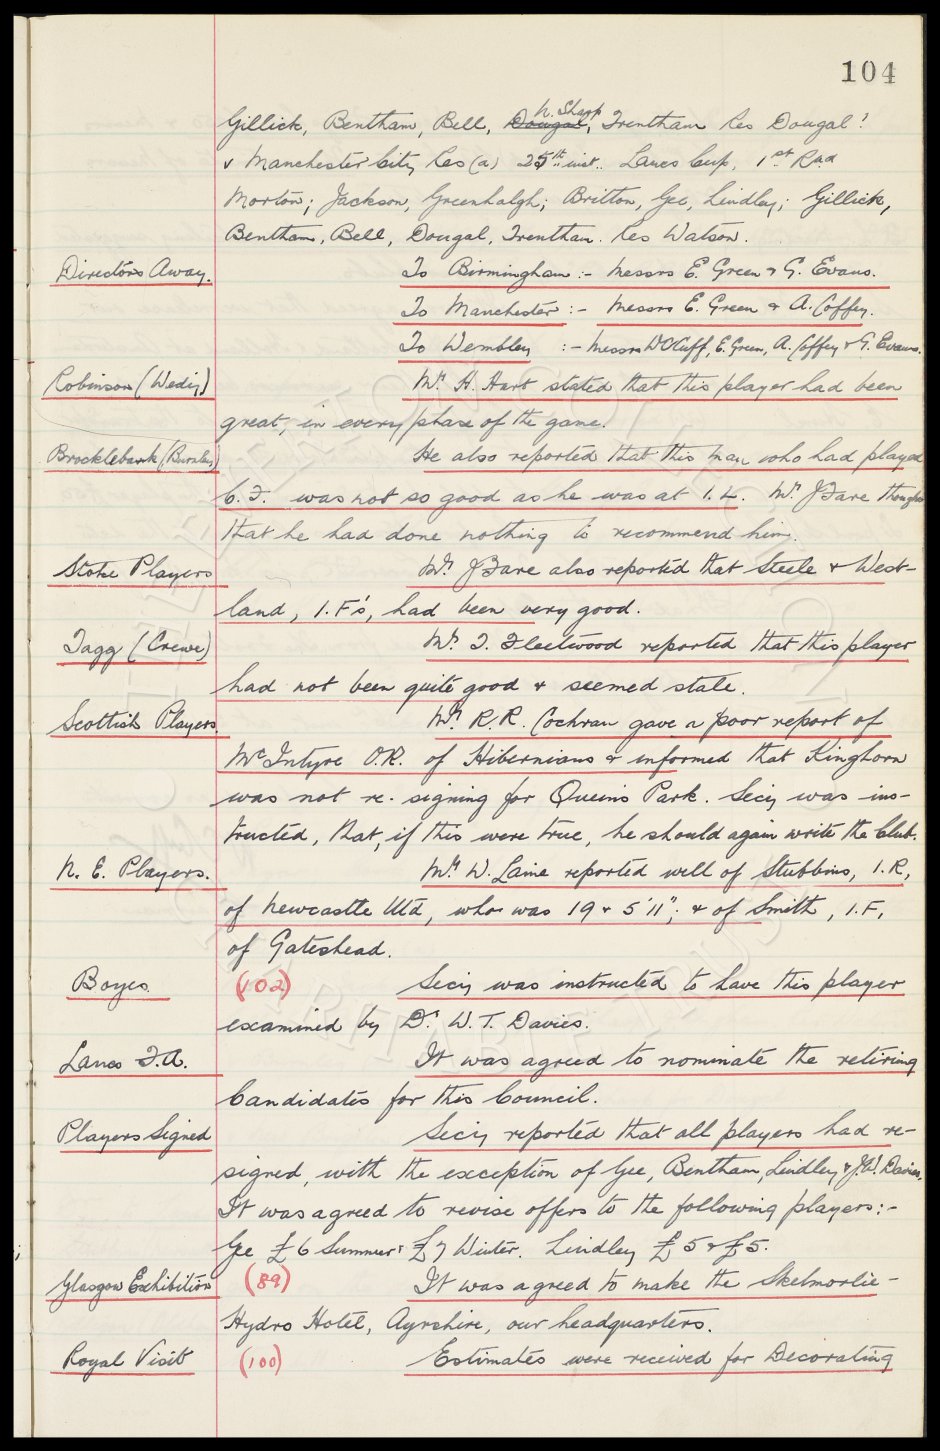 104
N. Sharp
Gillick, Bentham, Bell, Dougal, Trentham Res Dougal!
v Manchester City Res (a) 25th inst. Lancs Cup, 1st Rnd
Morton; Jackson, Greenhalgh; Britton, Gee, Lindley; Gillick,
Bentham, Bell, Dougal, Trentham. Res Watson.
Directors Away. To Birmingham :- Messrs E. Green & G. Evans.
To Manchester :- Messrs E. Green & A. Coffey.
To Wembley :- Messrs W C Cuff, E. Green, A. Coffey & G. Evans.
Robinson (Wedy) Mr. H. Hart stated that this player had been
great, in every phase of the game.
Brocklebank (Burnley) He also reported that this man who had played
C.F. was not so good as he was at I.L. Mr. J Fare thought
that he had done nothing to recommend him.
Stoke Players Mr. J Fare also reported that Steele & West-
land, I.F's, had been very good.
Tagg (Crewe) Mr. T. Fleetwood reported that this player
had not been quite good & seemed stale.
Scottish Players. Mr. R.R. Cochran gave a poor report of
McIntyre O.R. of Hibernians & informed that Kinghorn
was not re-signing for Queen's Park. Secy was ins-
tructed, that, if this were true, he should again write the Club.
N. E. Players. Mr. W. Laine reported well of Stubbins, I.R,
of Newcastle Utd, who was 19 & 5'11"; & of Smith, I.F,
of Gateshead.
Boyes. (102) Secy was instructed to have this player
examined by Dr. W. T. Davies.
Lancs F.A. It was agreed to nominate the retiring
Candidates for this Council.
Players Signed Secy reported that all players had re-
signed, with the exception of Gee, Bentham, Lindley & J.W. Davies.
It was agreed to revise offers to the following players:-
Gee £6 Summer: £7 Winter. Lindley £5 & £5.
Glasgow Exhibition (89) It was agreed to make the Skelmorlie-
Hydro Hotel, Ayrshire, our headquarters.
Royal Visit (100) Estimates were received for Decorating